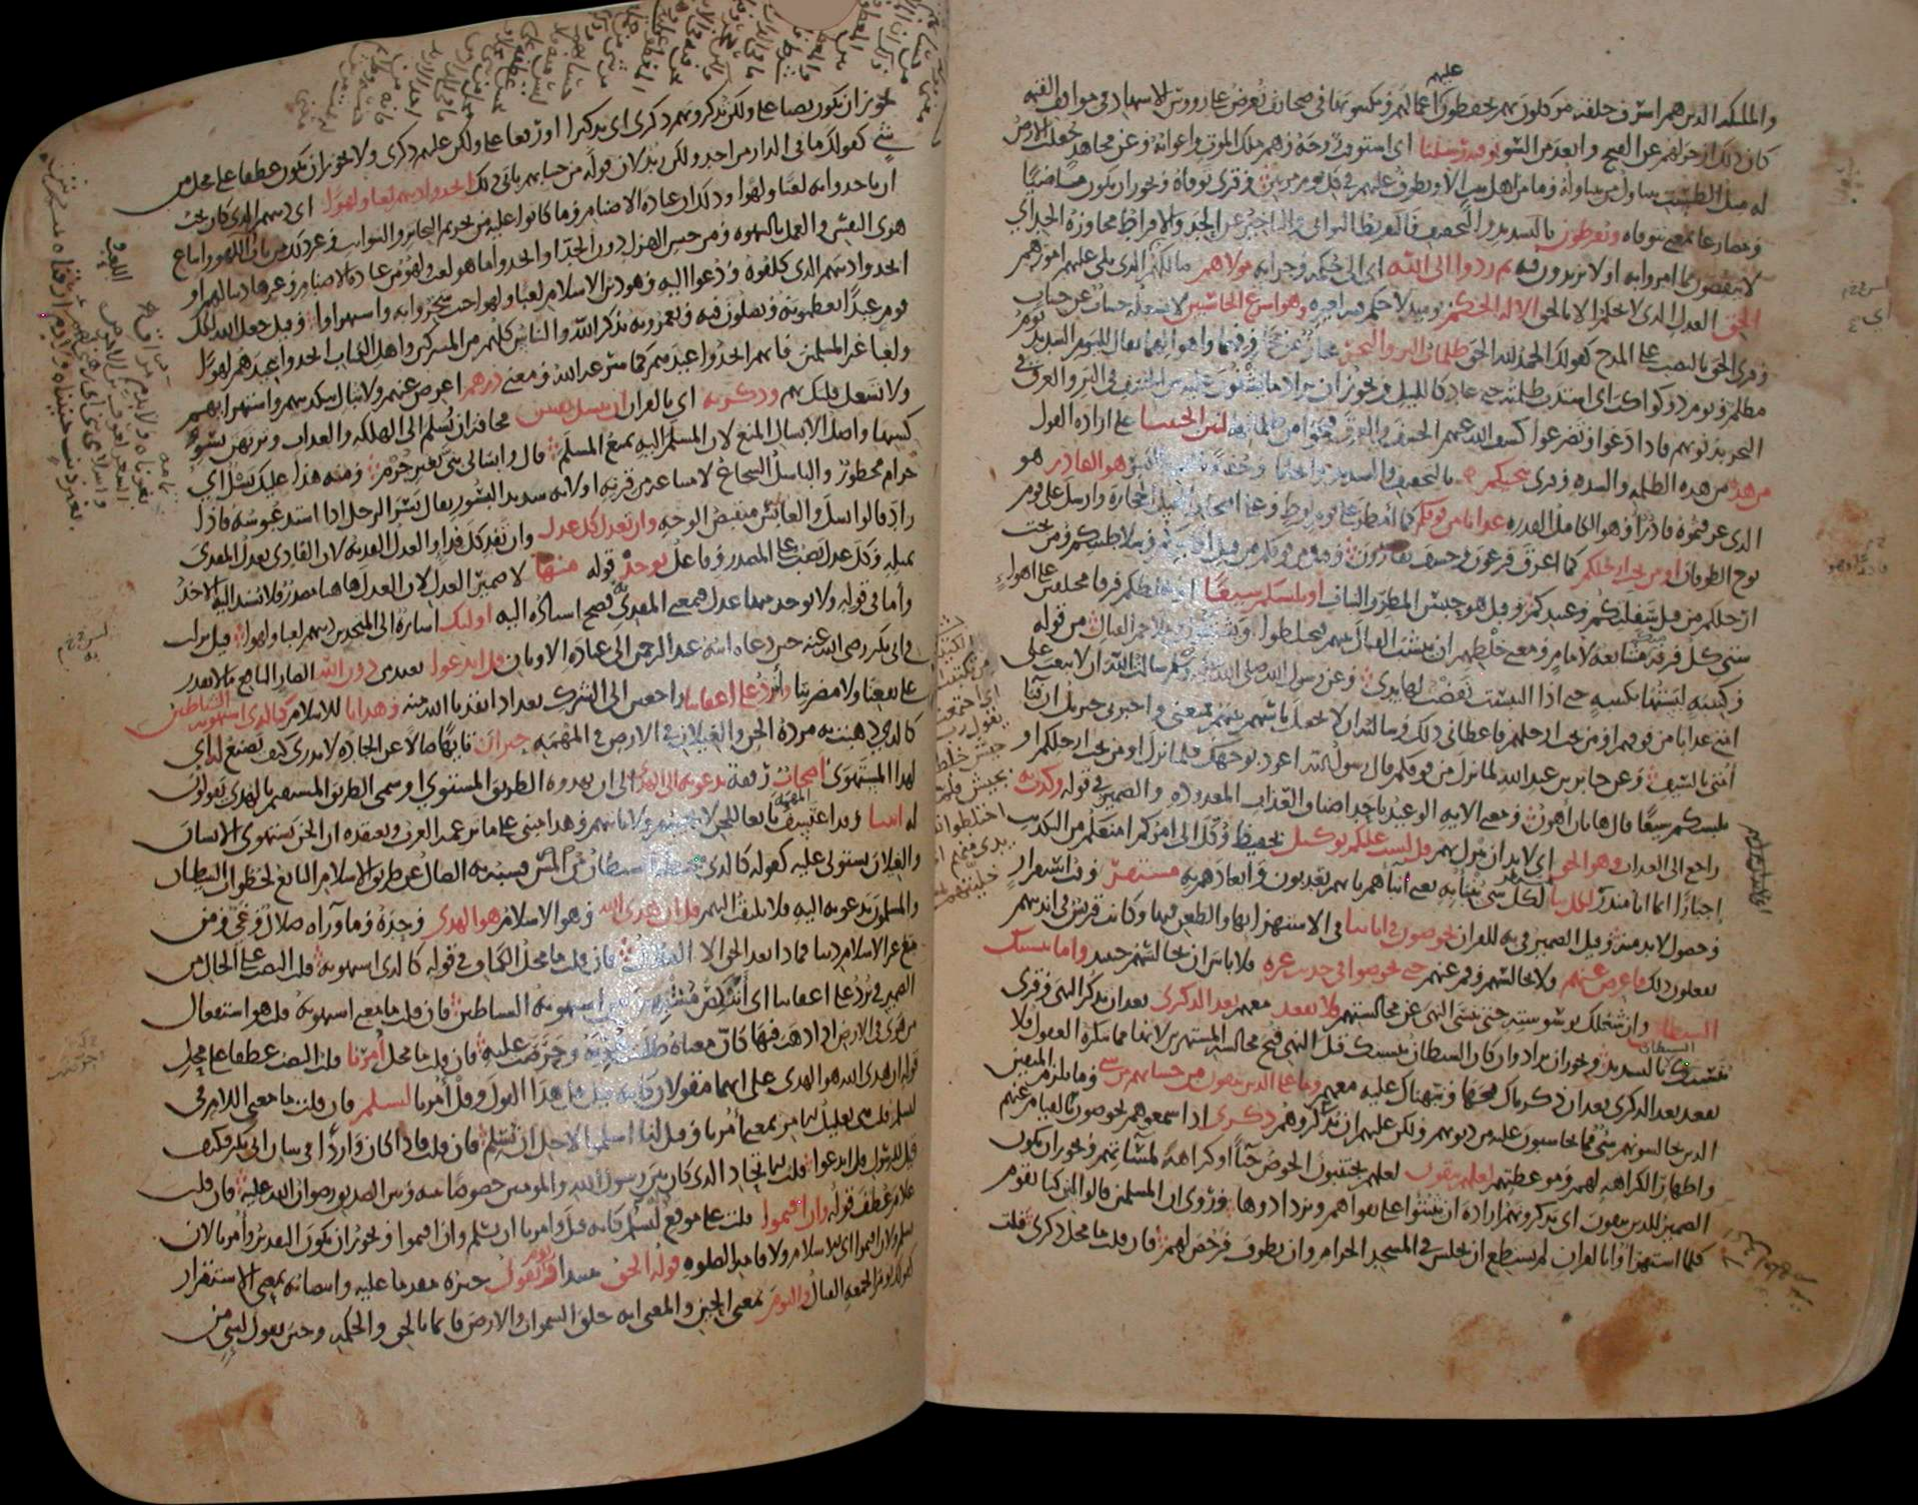 والملائكة الذين هم اشرف خلقه موكلون بهم يحفظون عليهم اعمالهم ويكتبونها في صحائف تعرض على رؤوس الاشهاد في مواقف القيمة
كان ذلك ازجر لهم عن القبيح وابعد من السوء توفته رسلنا اي استوفت روحه وهم ملك الموت واعوانه وعن مجاهد جعلت الارض
له مثل الطست يتناول من يتناوله وما من اهل بيت الا ويطوف عليهم في كل يوم مرتين وقرئ توفاه ويجوز ان يكون ماضيا
ومضارعا بمعنى تتوفاه ويفرطون بالتشديد والتخفيف فالتفريط التواني والتاخر عن الحد والافراط مجاوزة الحد اي
لا ينقصون مما امروا به او لا يزيدون فيه ثم ردوا الى الله اي الى حكمه وجزائه مولاهم مالكهم الذي يلي عليهم امورهم
الحق العدل الذي لا يحكم الا بالحق الا له الحكم يومئذ لا حكم فيه لغيره وهو اسرع الحاسبين لا يشغله حساب عن حساب
وقرئ الحق بالنصب على المدح كقولك الحمد لله الحق ظلمات البر والبحر مجاز عن مخاوفهما واهوالهما يقال لليوم الشديد يوم
مظلم ويوم ذو كواكب اي اشتدت ظلمته حتى عاد كالليل ويجوز ان يراد ما يشفون عليه من الخسف في البر والغرق في
البحر بذنوبهم فاذا دعوا وتضرعوا كشف الله عنهم الخسف والغرق فنجوا من ظلماتها لئن انجيتنا على ارادة القول
من هذه من هذه الظلمة والشدة وقرئ ينجيكم بالتخفيف والتشديد وانجانا وخفية بالضم والكسر هو القادر هو
الذي عرفتموه قادرا وهو الكامل القدرة عذابا من فوقكم كما امطر على قوم لوط وعلى اصحاب الفيل الحجارة وارسل على قوم
نوح الطوفان او من تحت ارجلكم كما اغرق فرعون وخسف بقارون وقيل من فوقكم من قبل اكابركم وسلاطينكم ومن تحت
ارجلكم من قبل سفلتكم وعبيدكم وقيل هو حبس المطر والنبات او يلبسكم شيعا او يخلطكم فرقا مختلفين على اهواء
شتى كل فرقة مشايعة لامام ومعنى خلطهم ان ينشب القتال بينهم فيختلطوا ويشتبكوا في ملاحم القتال من قوله
وكتيبة لبستها بكتيبة حتى اذا التبست نفضت لها يدي وعن رسول الله صلى الله عليه وسلم سالت الله ان لا يبعث على
امتي عذابا من فوقهم او من تحت ارجلهم فاعطاني ذلك وسالته ان لا يجعل باسهم بينهم فمنعني واخبرني جبريل ان فناء
امتي بالسيف وعن جابر بن عبد الله لما نزل من فوقكم قال رسول الله اعوذ بوجهك فلما نزل او من تحت ارجلكم او
يلبسكم شيعا قال هاتان اهون ومعنى الاية الوعيد باحد اصناف العذاب المعدودة والضمير في قوله وكذب به
راجع الى العذاب وهو الحق اي لا بد ان ينزل بهم قل لست عليكم بوكيل بحفيظ وكل الي امركم امنعكم من التكذيب
اجبارا انما انا منذر لكل نبا لكل شي ينبا به يعني انباءهم بانهم يعذبون وايعادهم به مستقر وقت استقرار
وحصول لا بد منه وقيل الضمير في به للقران يخوضون في اياتنا في الاستهزاء بها والطعن فيها وكانت قريش في انديتهم
يفعلون ذلك فاعرض عنهم ولا تجالسهم وقم عنهم حتى يخوضوا في حديث غيره فلا باس ان تجالسهم حينئذ واما ينسينك
الشيطان وان شغلك بوسوسته حتى تنسى النهي عن مجالستهم فلا تقعد معهم بعد الذكرى بعد ان تذكر النهي وقرئ
ينسينك بالتشديد ويجوز ان يراد وان كان الشيطان ينسينك قبل النهي قبح مجالسة المستهزئين لانها مما تنكره العقول فلا
تقعد بعد الذكرى بعد ان ذكرناك قبحها ونبهناك عليه معهم وما على الذين يتقون من حسابهم من شي وما يلزم المتقين
الذين يجالسونهم شي مما يحاسبون عليه من ذنوبهم ولكن عليهم ان يذكروهم ذكرى اذا سمعوهم يخوضون بالقيام عنهم
واظهار الكراهة لهم وموعظتهم لعلهم يتقون لعلهم يجتنبون الخوض حياء او كراهة لمساتهم ويجوز ان يكون
الضمير للذين يتقون اي يذكرونهم ارادة ان يثبتوا على تقواهم ويزدادوها وروي ان المسلمين قالوا لئن كنا نقوم
كلما استهزاوا بالقران لم نستطع ان نجلس في المسجد الحرام وان نطوف فرخص لهم فان قلت ما محل ذكرى قلت
يجوز ان تكون نصبا على ولكن يذكرونهم ذكرى اي تذكيرا او رفعا على ولكن عليهم ذكرى ولا يجوز ان يكون عطفا على محل من
شي كقولك ما في الدار من احد ولكن زيد لان قوله من حسابهم يابى ذلك اتخذوا دينهم لعبا ولهوا اي دينهم الذي كان يجب
ان ياخذوا به لعبا ولهوا وذلك ان عبادة الاصنام وما كانوا عليه من تحريم البحائر والسوائب وغير ذلك من باب اللهو واتباع
هوى النفس والعمل بالشهوة ومن جنس الهزل دون الجد او اتخذوا ما هو لعب ولهو من عبادة الاصنام وغيرها دينا لهم او
اتخذوا دينهم الذي كلفوه ودعوا اليه وهو دين الاسلام لعبا ولهوا حيث سخروا به واستهزاوا وقيل جعل الله لكل
قوم عيدا يعظمونه ويصلون فيه ويعمرونه بذكر الله والناس كلهم من المشركين واهل الكتاب اتخذوا عيدهم لهوا
ولعبا غير المسلمين فانهم اتخذوا عيدهم كما شرعه الله ومعنى ذرهم اعرض عنهم ولا تبال بتكذيبهم واستهزائهم
ولا تشغل قلبك بهم وذكر به اي بالقران ان تبسل نفس مخافة ان تسلم الى الهلكة والعذاب وترتهن بسوء
كسبها واصل الابسال المنع لان المسلم اليه يمنع المسلم قال وابسالي بني بغير جرم ومنه هذا عليك بسل اي
حرام محظور والباسل الشجاع لامتناعه من قرنه او لانه شديد البسور يقال بسر الرجل اذا اشتد عبوسه فاذا
زاد قالوا بسل والعابس منقبض الوجه وان تعدل كل عدل وان تفد كل فداء والعدل الفدية لان الفادي يعدل المفدي
بمثله وكل عدل نصب على المصدر وفاعل يوخذ قوله منها لا ضمير العدل لان العدل ها هنا مصدر فلا يسند اليه الاخذ
واما في قوله ولا يوخذ منها عدل فبمعنى المفدي به فصح اسناده اليه اولئك اشارة الى المتخذين دينهم لعبا ولهوا قيل نزلت
في ابي بكر رضي الله عنه حين دعاه ابنه عبد الرحمن الى عبادة الاوثان قل اندعوا انعبد من دون الله الضار النافع ما لا يقدر
على نفعنا ولا مضرتنا ونرد على اعقابنا راجعين الى الشرك بعد اذ انقذنا الله منه وهدانا للاسلام كالذي استهوته الشياطين
كالذي ذهبت به مردة الجن والغيلان في الارض في المهمه حيران تائها ضالا عن الجادة لا يدري كيف يصنع له اي
لهذا المستهوى اصحاب رفقة يدعونه الى الهدى الى ان يهدوه الطريق المستوي او سمى الطريق المستقيم بالهدى يقولون
له ائتنا وقد اعتسف المهمه تابعا للجن لا يجيبهم ولا ياتيهم وهذا مبني على ما تزعمه العرب وتعتقده ان الجن تستهوي الانسان
والغيلان تستولي عليه كقوله كالذي يتخبطه الشيطان من المس فشبه به الضال عن طريق الاسلام التابع لخطوات الشيطان
والمسلمون يدعونه اليه فلا يلتفت اليهم قل ان هدى الله وهو الاسلام هو الهدى وحده وما وراءه ضلال وغي ومن
يبتغ غير الاسلام دينا فماذا بعد الحق الا الضلال فان قلت ما محل الكاف في قوله كالذي استهوته قلت النصب على الحال من
الضمير في نرد على اعقابنا اي اننكص مشبهين من استهوته الشياطين فان قلت ما معنى استهوته قلت هو استفعال
من هوى في الارض اذا ذهب فيها كان معناه طلبت هويه وحرصت عليه فان قلت ما محل امرنا قلت النصب عطفا على محل
قوله ان هدى الله هو الهدى على انهما مقولان كانه قيل قل هذا القول وقل امرنا لنسلم فان قلت ما معنى اللام في
لنسلم قلت هي تعليل للامر بمعنى امرنا وقيل لنا اسلموا لاجل ان نسلم فان قلت فاذا كان واردا في شان ابي بكر فكيف
قيل للرسول قل اندعوا قلت للاتحاد الذي كان بين رسول الله والمومنين خصوصا بينه وبين الصديق رضوان الله عليه فان قلت
علام عطف قوله وان اقيموا قلت على موضع لنسلم كانه قيل وامرنا ان نسلم وان اقيموا ويجوز ان يكون التقدير وامرنا لان
نسلم ولان اقيموا اي للاسلام ولاقامة الصلوة قوله الحق مبتدا ويوم يقول خبره مقدما عليه وانتصابه بمعنى الاستقرار
كقولك يوم الجمعة القتال واليوم بمعنى الحين والمعنى انه خلق السموات والارض قائما بالحق والحكمة وحين يقول لشي من